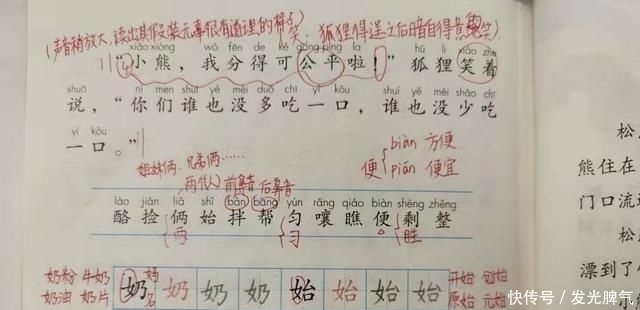 (声音稍放大,读出其假装无辜很有道理的样子。笑:狐狸得逞之后暗自得意
xiǎo xióng wǒ fēn de kě gōng píng la hú li xiào zhe
“小熊,我分得可公平啦!”狐狸笑着
shuō nǐ men shuí yě méi duō chī yì kǒu shuí yě méi shǎo chī
说,“你们谁也没多吃一口,谁也没少吃
yì kǒu
一口。”
姐妹俩、兄弟俩……
两个人
前鼻音 后鼻音
便
biàn 方便
pián 便宜
lào jiǎn liǎ shǐ bàn bāng yún rǎng qiáo biàn shèng zhěng
酪捡俩始拌帮匀嚷瞧便剩整
两
匀
胜
奶粉 牛奶
奶油 奶片
奶 奶 奶 奶 始 始 始 始
奶奶
开始 创始
原始 元始
松
熊住在
门口流
松
漂到了
小
快传号 / 发光脾气